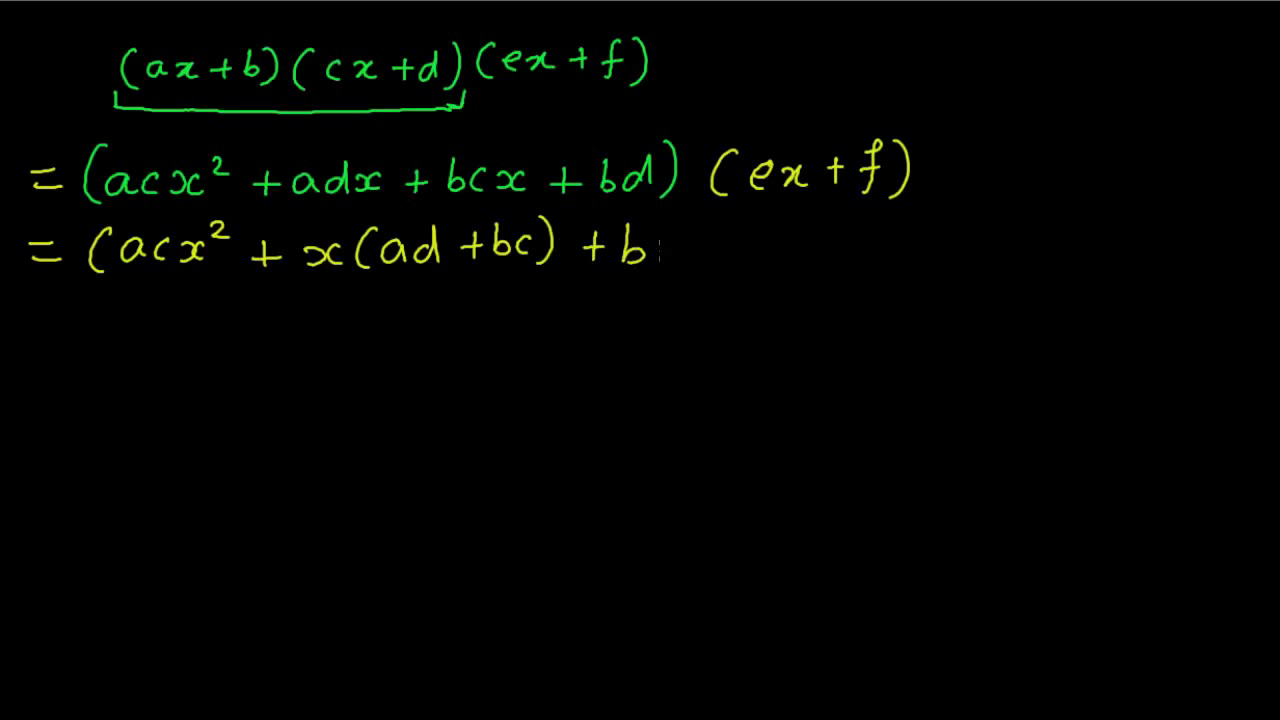 (ax+b)(cx+d)(ex+f)
= (acx² + adx + bcx + bd) (ex + f)
= (acx² + x(ad + bc) + b